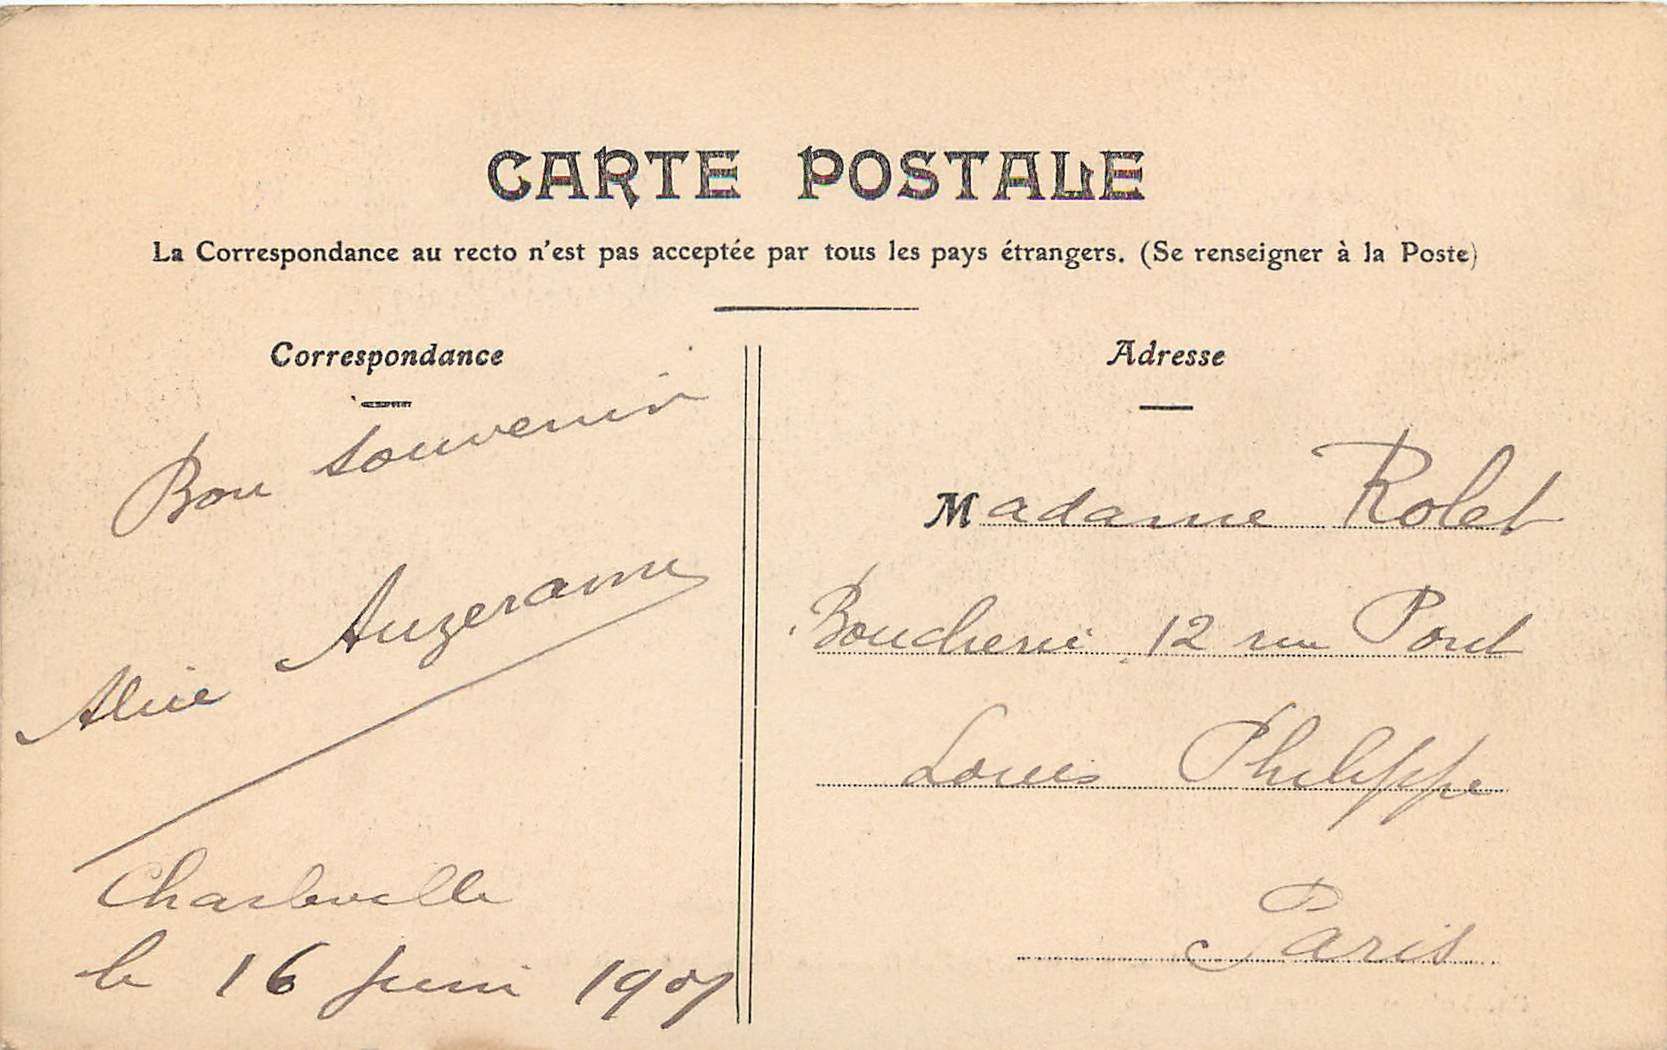 CARTE POSTALE
La Correspondance au recto n'est pas acceptée par tous les pays étrangers. (Se renseigner à la Poste)
Correspondance
Bon souvenir
Alice
Charleville
le 16 juin 1907
Adresse
Madame Rolet
Boucherie 12 rue Pont
Louis Philippe
Paris